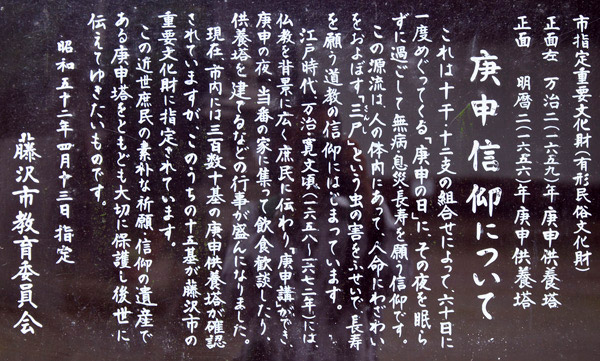 市指定重要文化財(有形民俗文化財)
正面左 万治二(一六五九)年庚申供養塔
正面 明暦二(一六五六)年庚申供養塔
庚申信仰について
これは十干・十二支の組合せによって、六十日に
一度めぐってくる「庚申の日」に、その夜を眠ら
ずに過ごして無病・息災・長寿を願う信仰です。
この源流は、人の体内にあって、人命にわざわい
をおよぼす「三尸」という虫の害をふせいで、長寿
を願う道教の信仰にはじまっています。
江戸時代、万治・寛文頃(一六五八~一六七二年)には、
仏教を背景に広く庶民に伝わり、庚申講ができ、
庚申の夜、当番の家に集って飲食歓談したり、
供養塔を建てるなどの行事が盛んになりました。
現在、市内には三百数十基の庚申供養塔が確認
されていますが、このうちの十五基が藤沢市の
重要文化財に指定されています。
この近世庶民の素朴な祈願、信仰の遺産で
ある庚申塔をともども大切に保護し後世に
伝えてゆきたいものです。
昭和五十二年四月十三日 指定
藤沢市教育委員会